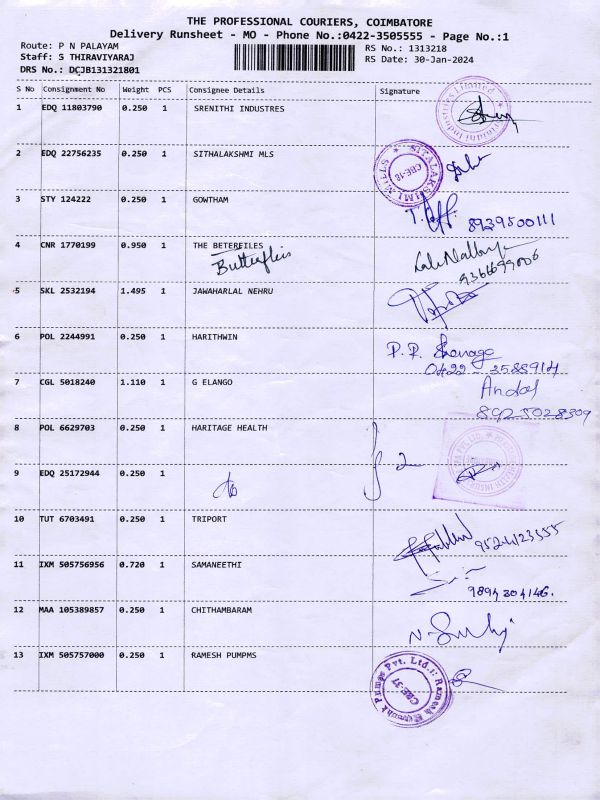 THE PROFESSIONAL COURIERS, COIMBATORE
Delivery Runsheet - MO - Phone No.:0422-3505555 - Page No.:1
Route: P N PALAYAM
Staff: S THIRAVIYARAJ
DRS No.: DCJB131321801
RS No.: 1313218
RS Date: 30-Jan-2024
S No Consignment No Weight PCS Consignee Details Signature
1 EDQ 11803790 0.250 1 SRENITHI INDUSTRES
2 EDQ 22756235 0.250 1 SITHALAKSHMI MLS
SITALAKSHMI MILLS
CBE-18
3 STY 124222 0.250 1 GOWTHAM
8939500111
4 CNR 1770199 0.950 1 THE BETEREILES
Butterflies
9366699006
5 SKL 2532194 1.495 1 JAWAHARLAL NEHRU
6 POL 2244991 0.250 1 HARITHWIN
P. R.
0422-3588914
7 CGL 5018240 1.110 1 G ELANGO
Andal
8925028309
8 POL 6629703 0.250 1 HARITAGE HEALTH
2
9 EDQ 25172944 0.250 1
do
10 TUT 6703491 0.250 1 TRIPORT
9524123555
11 IXM 505756956 0.720 1 SAMANEETHI
9894304146.
12 MAA 105389857 0.250 1 CHITHAMBARAM
13 IXM 505757000 0.250 1 RAMESH PUMPMS
CBE-37